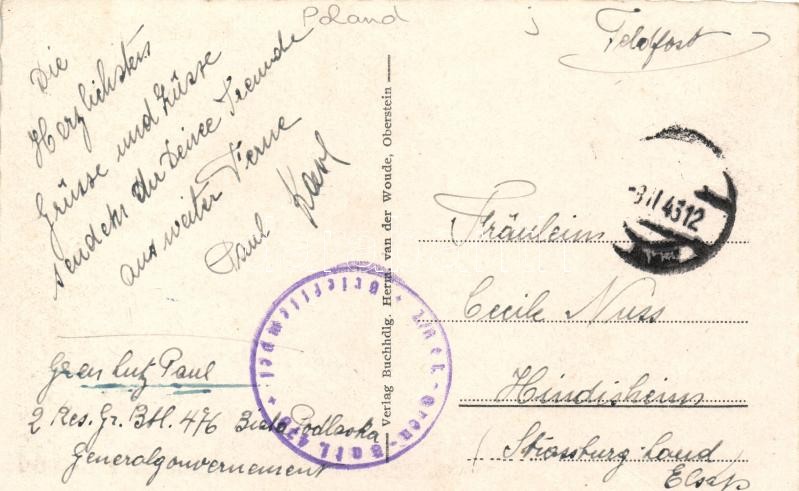 Poland
Feldpost
Die
Herzlichsten
Grüsse und Küsse
senden dir Deine Freunde
aus weiter Ferne
Paul Karl
Gren Lutz Paul
2 Res. Gr. Btl. 476 Biala Podlaska
Generalgouvernement
Verlag Buchhdlg. Herm. van der Woude, Oberstein
-9 II 43 12
Fräulein
Cecile Nuss
Hindisheim
Strassburg-Land
Elsaß
Briefstempel
Gren-Batl. 476